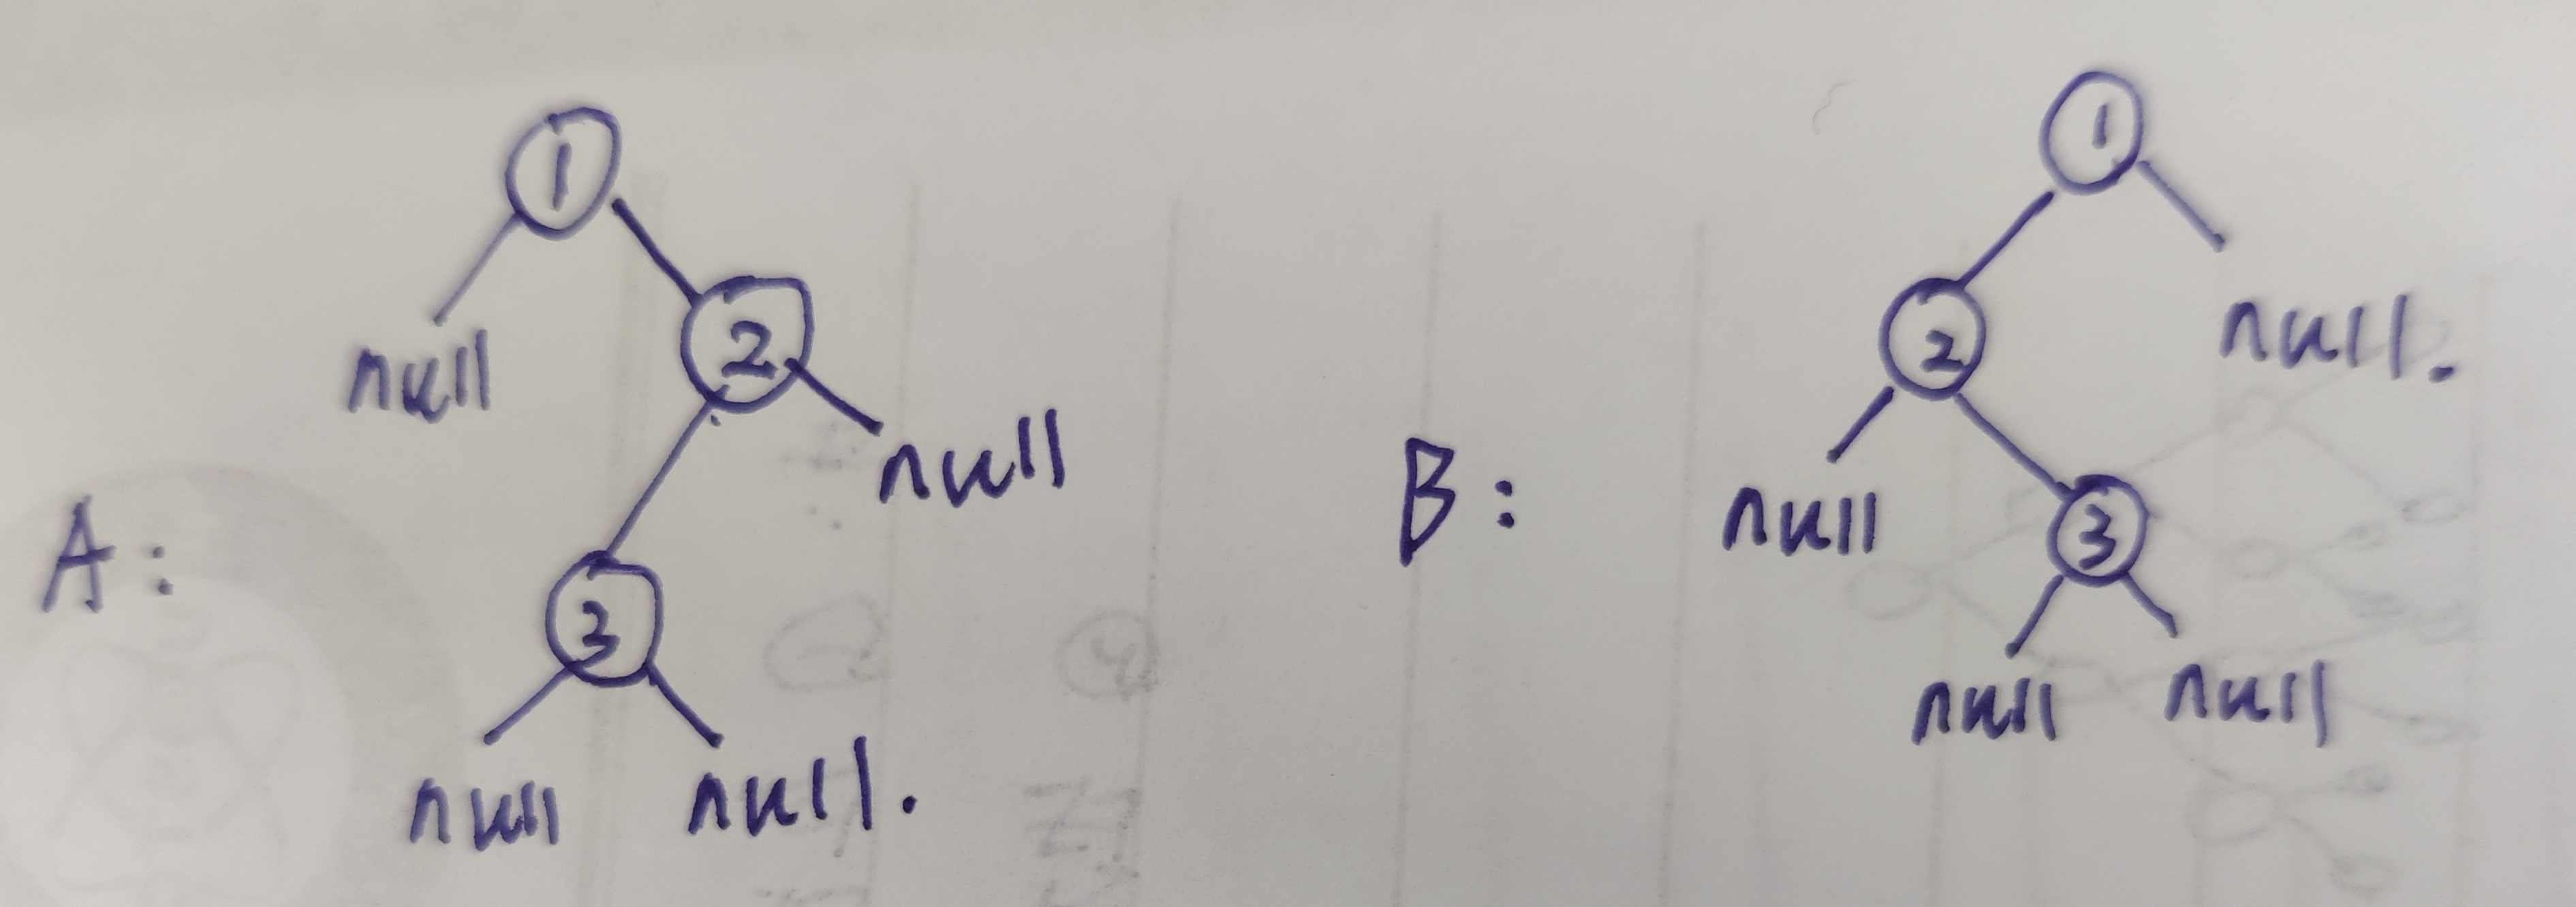 A:
1
null
2
null
3
null
null.
B:
1
2
null.
null
3
null
null